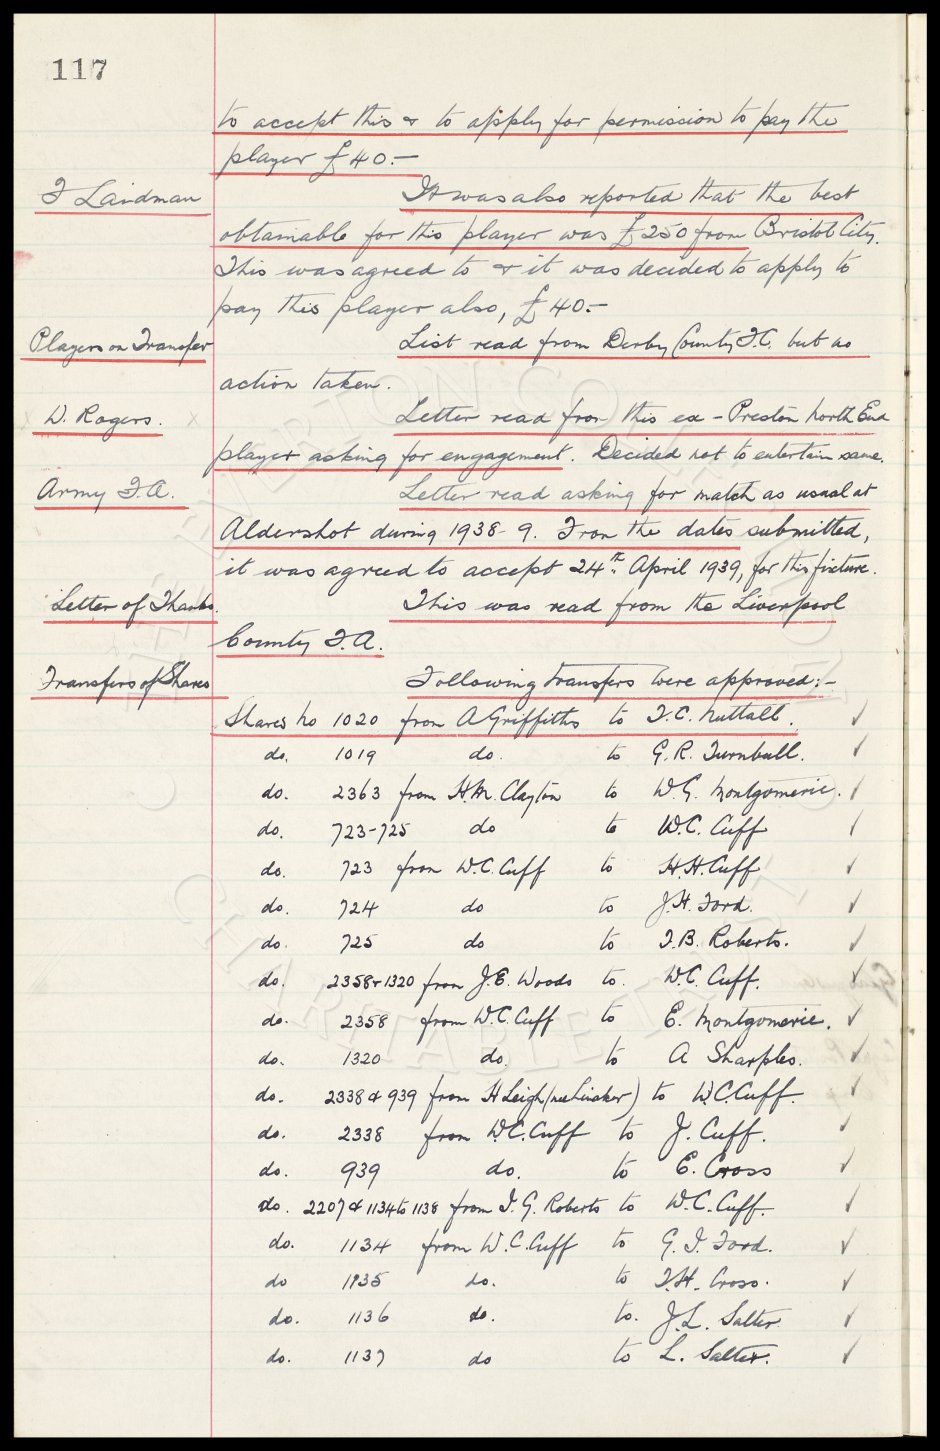 117
to accept this & to apply for permission to pay the
player £40.—
It was also reported that the best
obtainable for this player was £250 from Bristol City.
This was agreed to & it was decided to apply to
pay this player also, £40.-
Players on Transfer List read from Derby County F.C. but no
action taken.
W. Rogers. Letter read from this ex-Preston North End
player asking for engagement. Decided not to entertain same.
Army F.A. Letter read asking for match as usual at
Aldershot during 1938-9. From the dates submitted,
it was agreed to accept 24th April 1939, for this fixture.
Letter of Thanks. This was read from the Liverpool
County F.A.
Transfers of Shares Following transfers were approved:-
Shares No 1020 from A Griffiths to F.C. Nuttall.
do. 1019 do. to G.R. Turnbull.
do. 2363 from H.M. Clayton to W.G. Montgomerie.
do. 723-725 do to W.C. Cuff
do. 723 from W.C. Cuff to H.H. Cuff
do. 724 do to J.H. Ford.
do. 725 do to F.B. Roberts.
do. 2358 & 1320 from J.E. Woods to. W.C. Cuff.
do. 2358 from W.C. Cuff to E. Montgomerie.
do. 1320 do. to A Sharples.
do. 2338 & 939 from H Leigh (nee Linaker) to W.C. Cuff.
do. 2338 from W.C. Cuff to J. Cuff.
do. 939 do. to E. Cross
do. 2207 & 1134 to 1138 from J.G. Roberts to W.C. Cuff.
do. 1134 from W.C. Cuff to G.J. Ford.
do 1135 do. to F.H. Cross.
do. 1136 do. to. J.L. Salter
do. 1137 do to L. Salter.